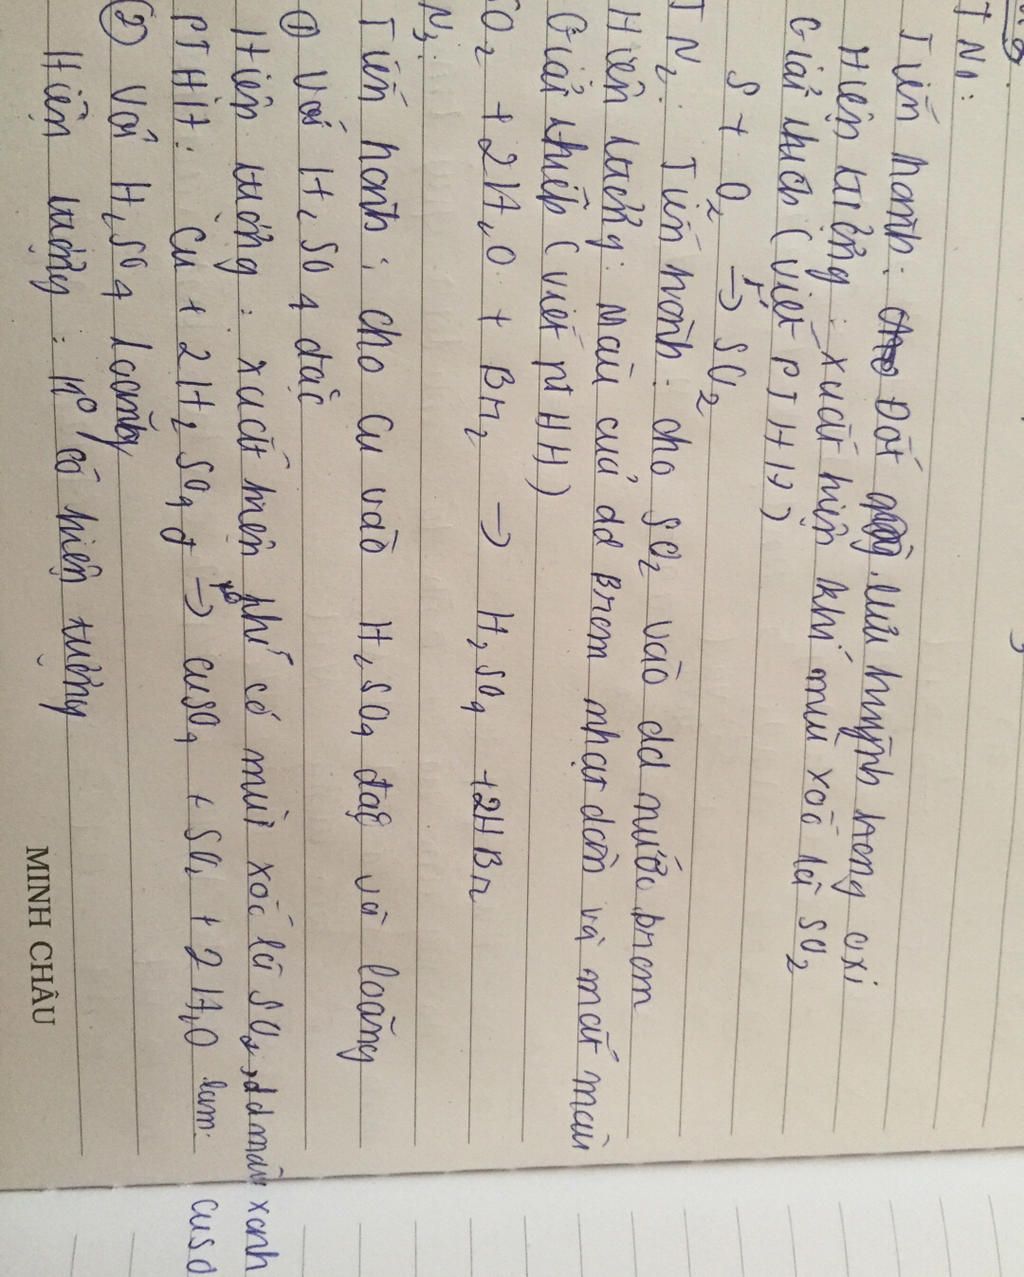 TN1:
Tiến hành: Đốt lưu huỳnh trong oxi
Hiện tượng: xuất hiện khí mùi xốc là SO2
Giải thích (viết PTHH)
S + O2 →t° SO2
TN2: Tiến hành: cho SO2 vào dd nước brom
Hiện tượng: Màu của dd Brom nhạt dần và mất màu
Giải thích (viết ptHH)
SO2 + 2H2O + Br2 → H2SO4 + 2HBr
N3:
Tiến hành: cho Cu vào H2SO4 đặc và loãng
① Với H2SO4 đặc
Hiện tượng: xuất hiện khí có mùi xốc là SO2, dd màu xanh
PTHH: Cu + 2H2SO4 đ →t° CuSO4 + SO2 + 2H2O lam. CuSO
② Với H2SO4 loãng
Hiện tượng: k° có hiện tượng
MINH CHÂU